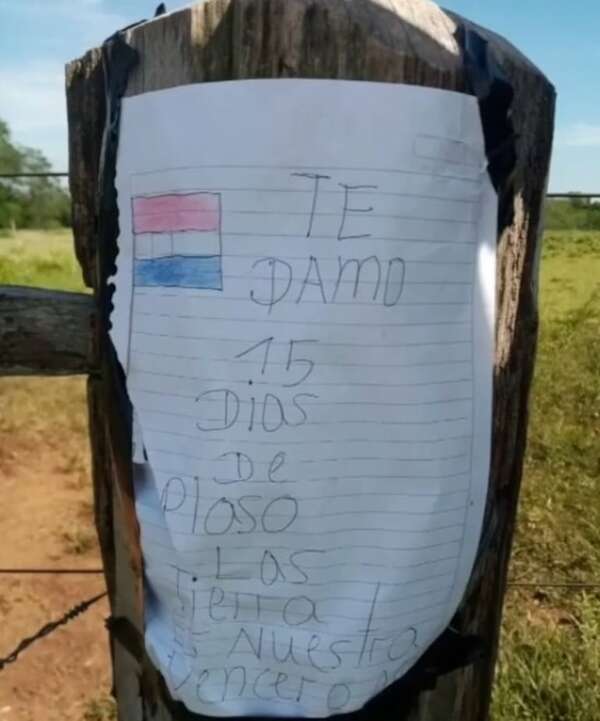 TE
DAMO
15
Dios
De
Ploso
Las
Tierra
es Nuestra
Vencero